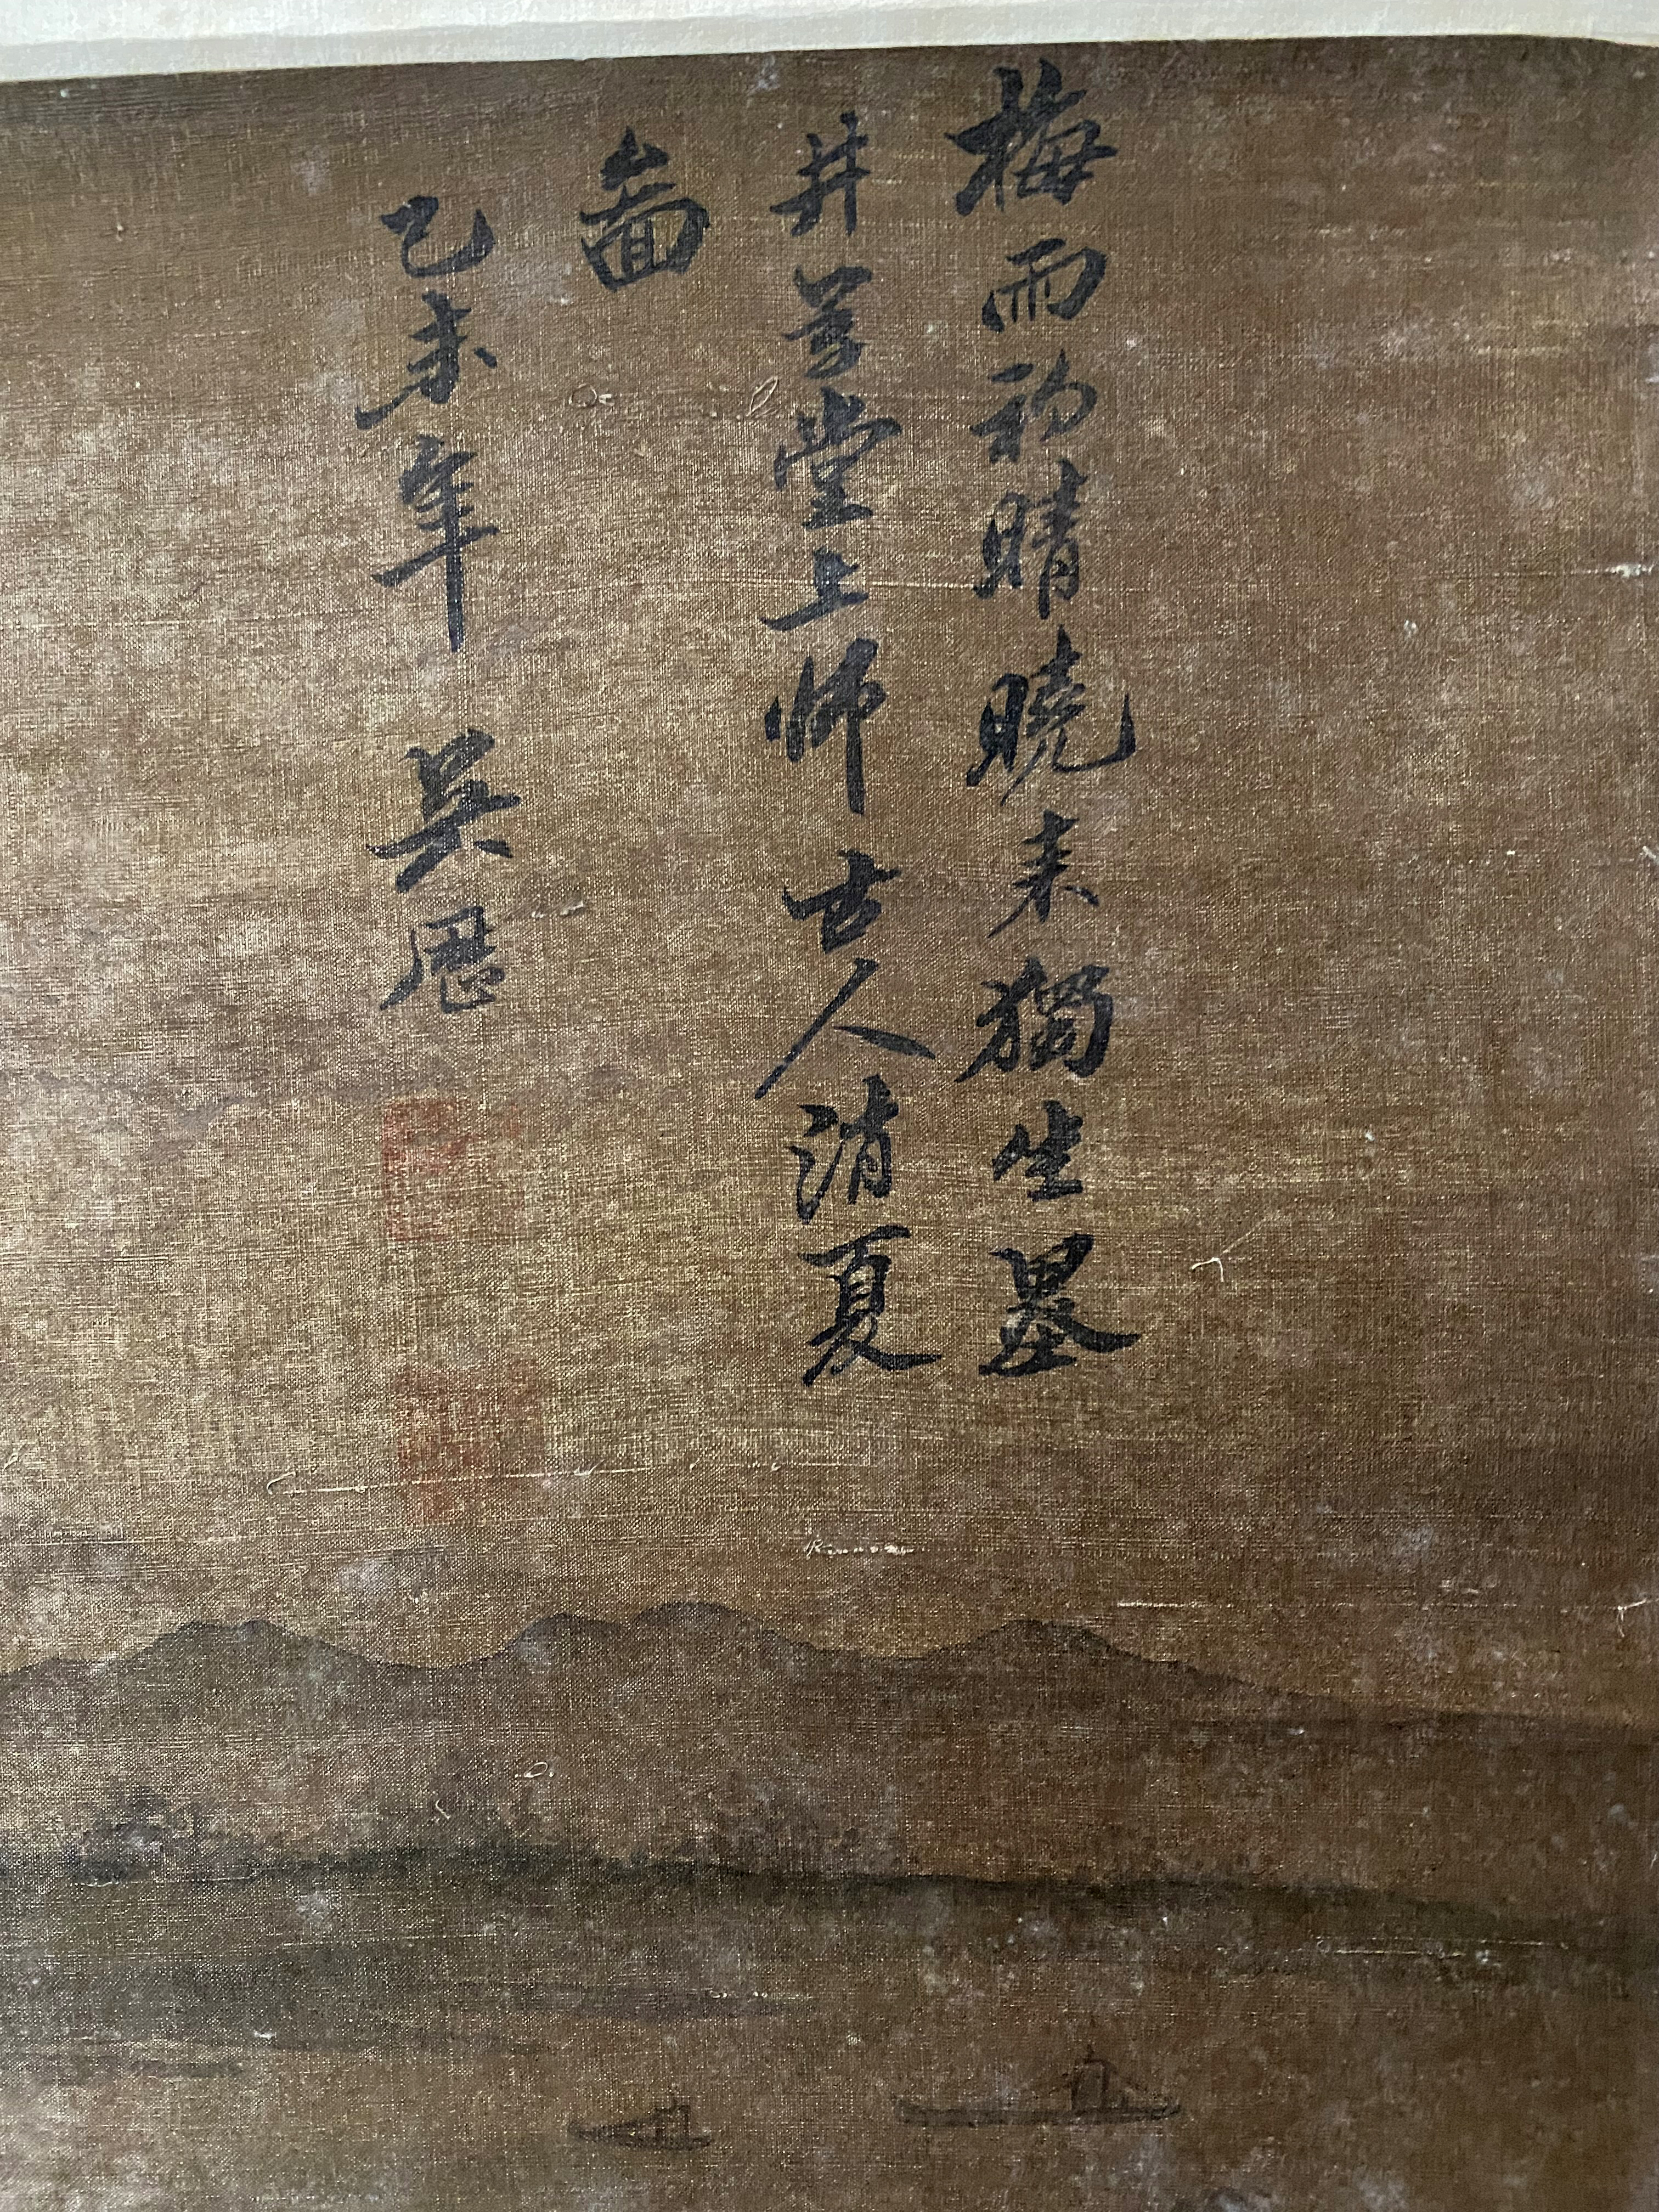 梅雨初晴曉来獨坐墨
井草堂上師古人消夏
啚
乙未年 吳歷